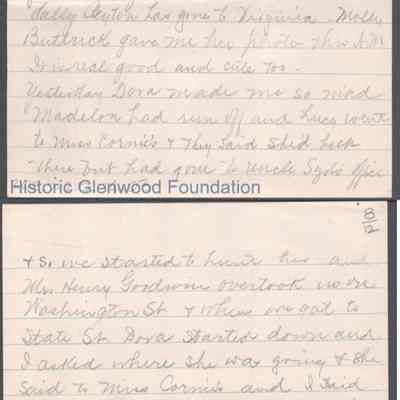 Hally Clayton has gone to Virginia - Molly
Buttrick gave me her photo this A.M.
It is real good and cute too -
Yesterday Dora made me so mad
Madelon had run off and hues went
to Miss Corni's & they said she'd been
there but had gone to Uncle Syd's office
Historic Glenwood Foundation
8/12
& so we started to hunt her and
Mrs. Henry Goodwin overtook us on
Washington St & when we got to
State St. Dora started down and
I asked where she was going & she
said to Miss Corni's and I said